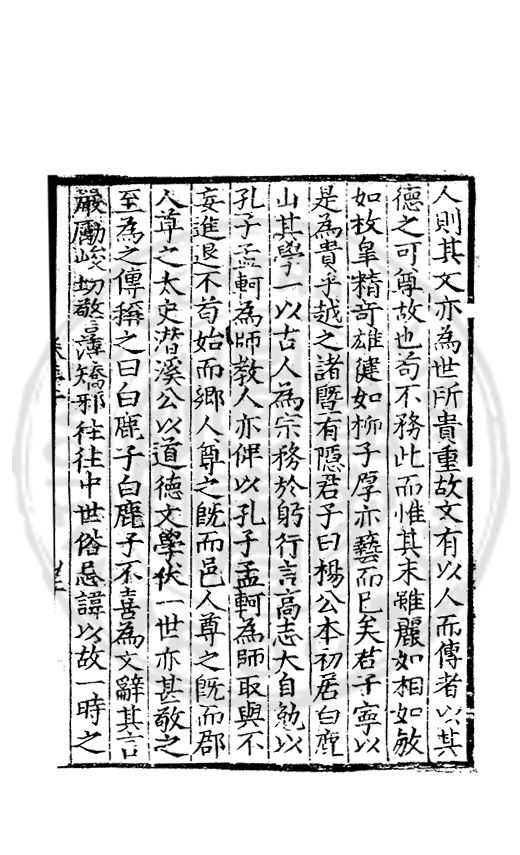 人則其文亦為世所貴重故文有以人而傳者以其
德之可尊故也苟不務此而惟其末雖麗如相如敏
如枚皐精奇雄健如栁子厚亦藝而已矣君子寧以
是為貴乎越之諸暨有隱君子曰楊公本初居白鹿
山其學一以古人為宗務於躬行言高志大自勉以
孔子孟軻為師教人亦俾以孔子孟軻為師取與不
妄進退不苟始而鄉人尊之既而邑人尊之既而郡
人尊之太史潛溪公以道德文學伏一世亦甚敬之
至為之傳稱之曰白鹿子白鹿子不喜為文辭其言
嚴勵峻切警薄矯邪往往中世俗忌諱以故一時之